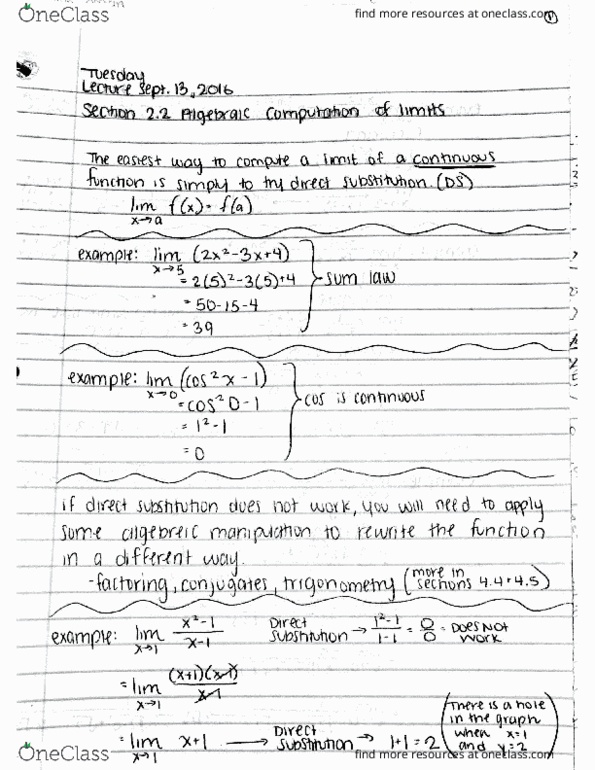 OneClass
find more resources at oneclass.com
1
Tuesday
Lecture Sept. 13, 2016
Section 2.2 Algebraic Computation of limits
The easiest way to compute a limit of a continuous
function is simply to try direct substitution. (DS)
lim f(x) = f(a)
x→a
example: lim (2x²-3x+4)
x→5
= 2(5)²-3(5)+4
= 50-15-4
= 39
sum law
example: lim (cos²x - 1)
x→0
= cos²0-1
= 1²-1
= 0
cos is continuous
if direct substitution does not work, you will need to apply
some algebreic manipulation to rewrite the function
in a different way.
-factoring, conjugates, trigonometry (more in sections 4.4+4.5)
example: lim x²-1 / x-1 Direct substitution → 1²-1 / 1-1 = 0/0 = DOES NOT WORK
x→1
= lim (x+1)(x-1) / x-1
x→1
= lim x+1 → Direct substitution → 1+1=2
x→1
(There is a hole
in the graph
when x=1
and y=2)
OneClass
find more resources at oneclass.com